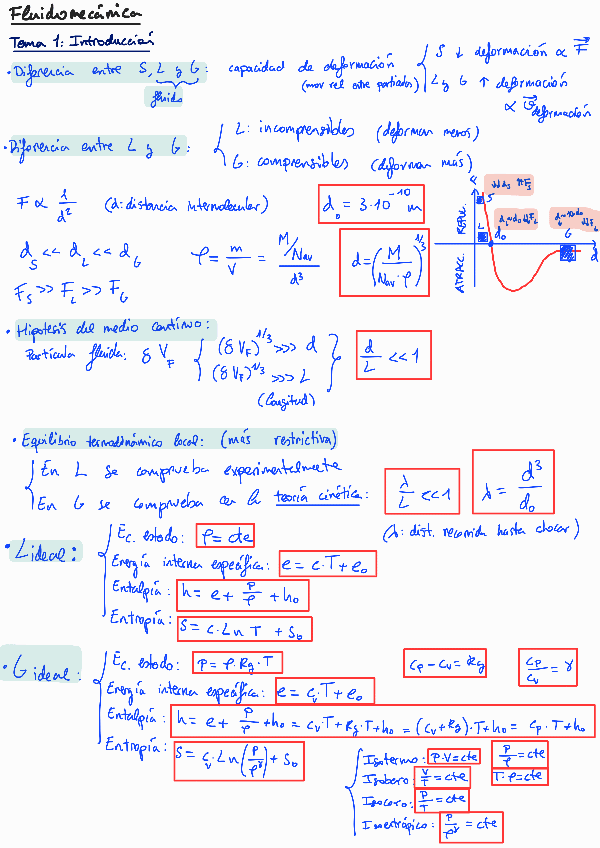 Fluidomecánica
Tema 1: Introducción
· Diferencia entre S, L y G: capacidad de deformación { S ↓ deformación ∝ F⃗
fluido (mov rel entre partículas) L y G ↑ deformación
∝ v⃗ deformación
· Diferencia entre L y G: { L: incompresibles (deforman menos)
G: compresibles (deforman más)
F ∝ 1/d² (d: distancia intermolecular) d₀ = 3·10⁻¹⁰ m
d_S << d_L << d_G ρ = m/V = (M/N_av)/d³ d = (M/(N_av·ρ))^(1/3)
F_S >> F_L >> F_G
REPUL.
ATRACC.
S
L
d₀
G
d
· Hipótesis del medio continuo:
Partícula fluida: δV_F { (δV_F)^(1/3) >>> d } d/L << 1
(δV_F)^(1/3) >>> L
(longitud)
· Equilibrio termodinámico local: (más restrictiva)
{ En L se comprueba experimentalmente
En G se comprueba con la teoría cinética: λ/L << 1 λ = d³/d₀
(λ: dist. recorrida hasta chocar)
· L ideal: { Ec. estado: ρ = cte
Energía interna específica: e = c·T + e₀
Entalpía: h = e + p/ρ + h₀
Entropía: s = c·Ln T + s₀
· G ideal: { Ec. estado: p = ρ·Rg·T cp − cv = Rg cp/cv = γ
Energía interna específica: e = cv·T + e₀
Entalpía: h = e + p/ρ + h₀ = cv·T + Rg·T + h₀ = (cv + Rg)·T + h₀ = cp·T + h₀
Entropía: s = cv·Ln(p/ρ^γ) + s₀
{ Isotermo: p·V = cte p/ρ = cte
Isobaro: V/T = cte T·ρ = cte
Isocoro: p/T = cte
Isentrópico: p/ρ^γ = cte